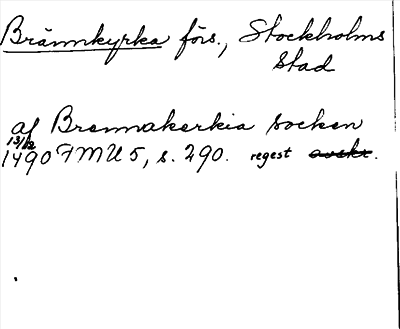 Brännkyrka förs., Stockholms
stad
af Brennakerkia socken
13/12
1490 FMU 5, s. 290. regest avskr.